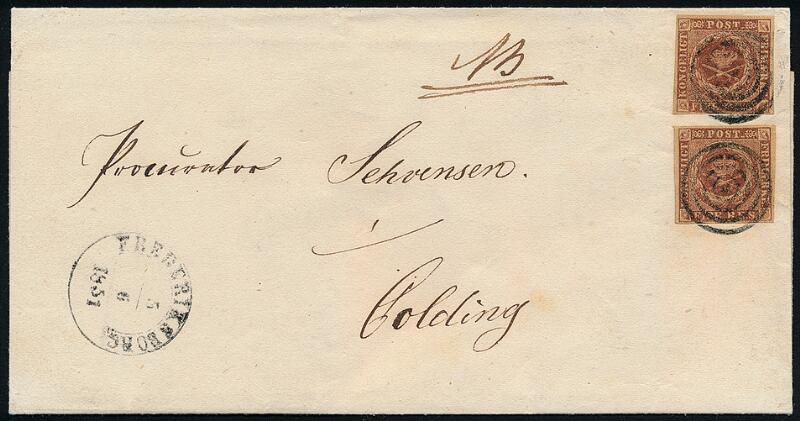 NB
Procurator Schvensen.
i
Colding
FREDERIKSBORG
5
6
1851
KONGELIGT POST FRIMÆRKE
FIRE R.B.S.
KONGELIGT POST FRIMÆRKE
FIRE R.B.S.